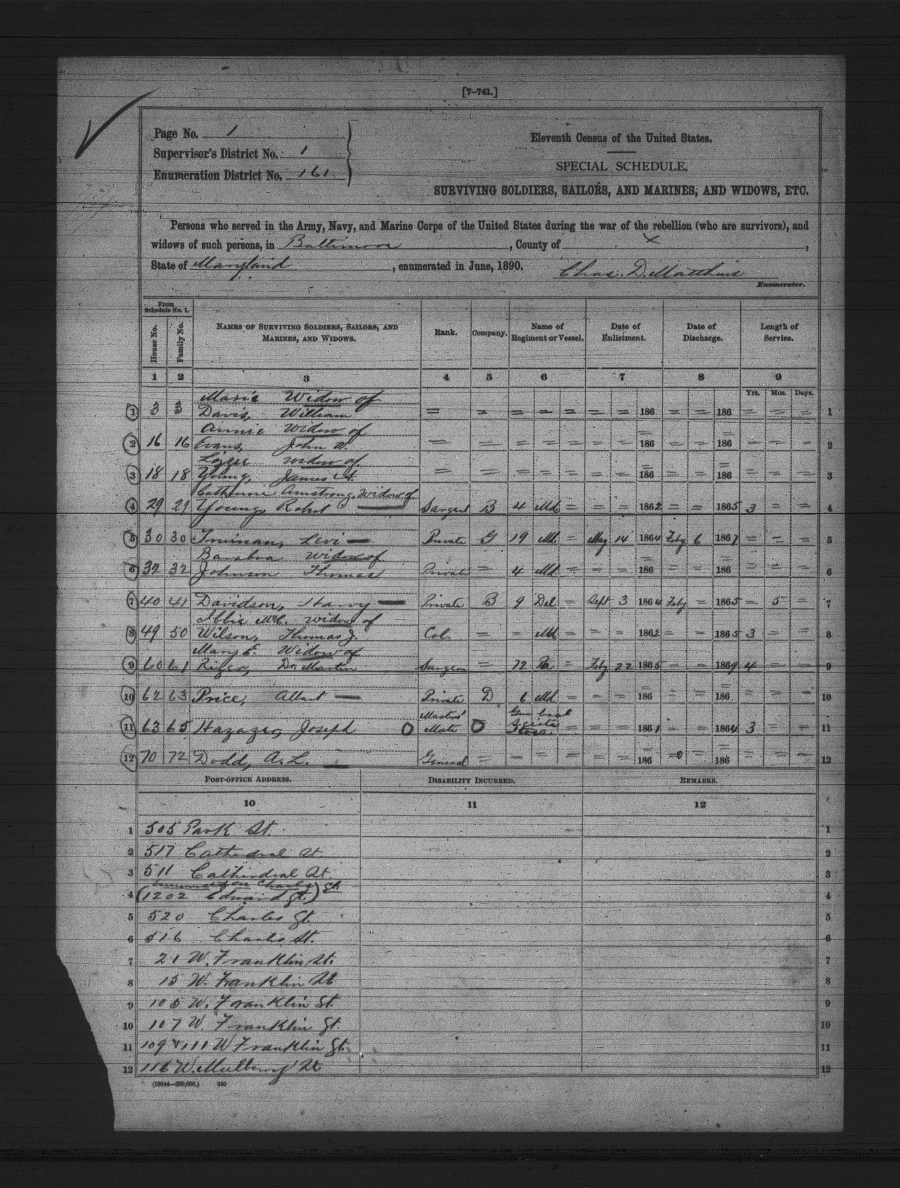 [7-741.]
Page No. 1
Supervisor's District No. 1
Enumeration District No. 161
Eleventh Census of the United States.
SPECIAL SCHEDULE.
SURVIVING SOLDIERS, SAILORS, AND MARINES, AND WIDOWS, ETC.
Persons who served in the Army, Navy, and Marine Corps of the United States during the war of the rebellion (who are survivors), and
widows of such persons, in Baltimore, County of x,
State of Maryland, enumerated in June, 1890. Chas. D. Matthews
Enumerator.
From Schedule No. 1.
House No. Family No. Names of Surviving Soldiers, Sailors, and Marines, and Widows. Rank. Company. Name of Regiment or Vessel. Date of Enlistment. Date of Discharge. Length of Service.
1 2 3 4 5 6 7 8 9
Yrs. Mos. Days.
Marie Widow of
1 3 3 Davis, William = = = = = = = 186 = = 186 = = = 1
Annie Widow of
2 16 16 Evans, John W. = = = = = = = 186 = = 186 = = = 2
Lizzie widow of
3 18 18 Young, James = = = = = = = 186 = = 186 = = = 3
Catherine Armstrong, widow of
4 29 29 Young, Robt Sargent B 4 Md = = = 1862 = = 1865 3 = = 4
5 30 30 Levi Private G 19 Md. = May 14 1864 Feby 6 1867 = = = 5
Barabra Widow of
6 32 32 Johnson Thomas Private = 4 Md = = = 186 = = 186 = = = 6
7 40 41 Davidson, Harry Private B 9 Del = Sept 3 1864 Feby = 1865 = 5 = 7
Abbie Mc. widow of
8 49 50 Wilson, Thomas J. Col. = = Md = = = 1862 = = 1865 3 = = 8
Mary E. Widow of
9 60 61 Rizer, Dr. Martin Surgeon = 72 Pa = Feby 22 1865 = = 1869 4 = = 9
10 62 63 Price, Albert Private D 6 Md = = = 186 = = 186 = = = 10
11 63 65 Hazazer, Joseph O Masters Mate O Gun boat = = 1861 = = 1864 3 = = 11
12 70 72 Dodd, A. L. General = = = = = = 186 = 0 186 = = = 12
Post-Office Address. Disability Incurred. Remarks.
10 11 12
1 505 Park St. 1
2 517 Cathedral St 2
3 511 Cathedral St 3
4 (1202 Edward St.) 4
5 520 Charles St. 5
6 516 Charles St. 6
7 21 W. Franklin St. 7
8 15 W. Franklin St 8
9 105 W. Franklin St. 9
10 107 W. Franklin St. 10
11 109 & 111 W Franklin St. 11
12 116 W. Mulberry St 12